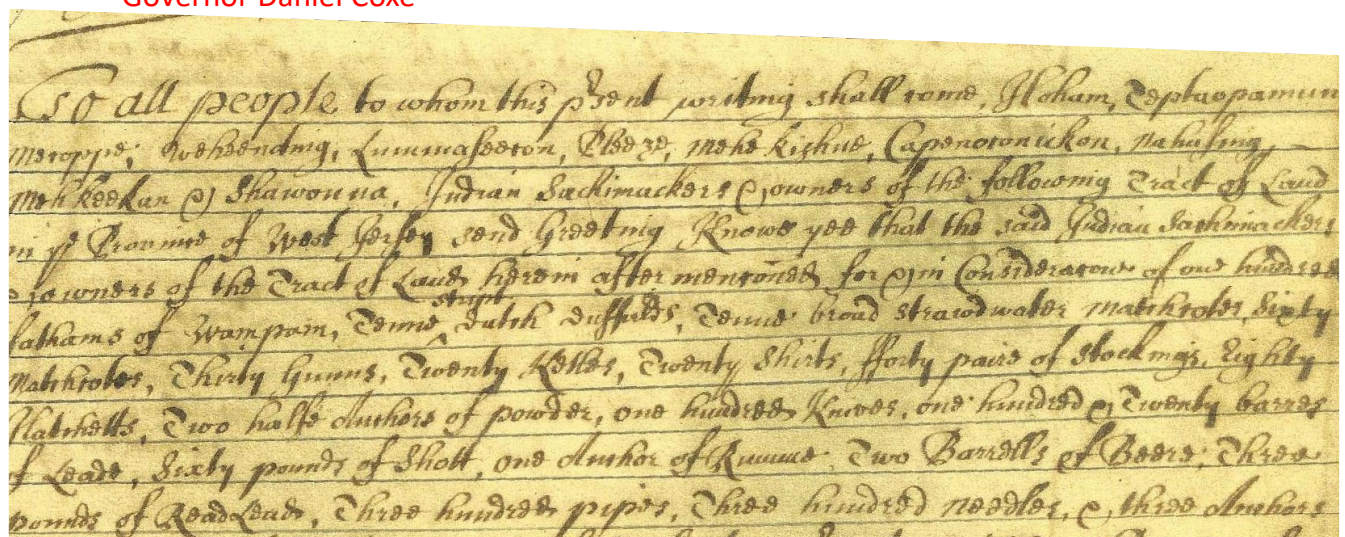 Governor Daniel Coxe
To all people to whom this p'sent writing shall come, Hoham, Teptaopamun
Metoppe, Weheending, Lummaseecon, Pleeze, Mehekishue, Capenoconickon, Nahasing,
Mehkeekan & Shawonna, Indian Sackimackers & owners of the following Tract of Land
in ye Province of West Jersey send Greeting Knowe yee that the said Indian Sachimackers
& owners of the Tract of Land herein after menconed for & in Consideracon of one hundred
fathams of Wampam, Tenne stript dutch duffields, Tenne broad strawdwater Matchcotes, Sixty
Matchcotes, Thirty Gunns, Twenty Kettles, Twenty Shirts, fforty paire of Stockings, Eighty
Hatchetts, Two halfe Anchors of powder, one hundred Knives, one hundred & Twenty barres
of Leade, Sixty pounds of Shott, one Anchor of Rumme, Two Barrells of Beere, Three
pounds of Read Lead, Three hundred pipes, Three hundred needles, & three Anchors